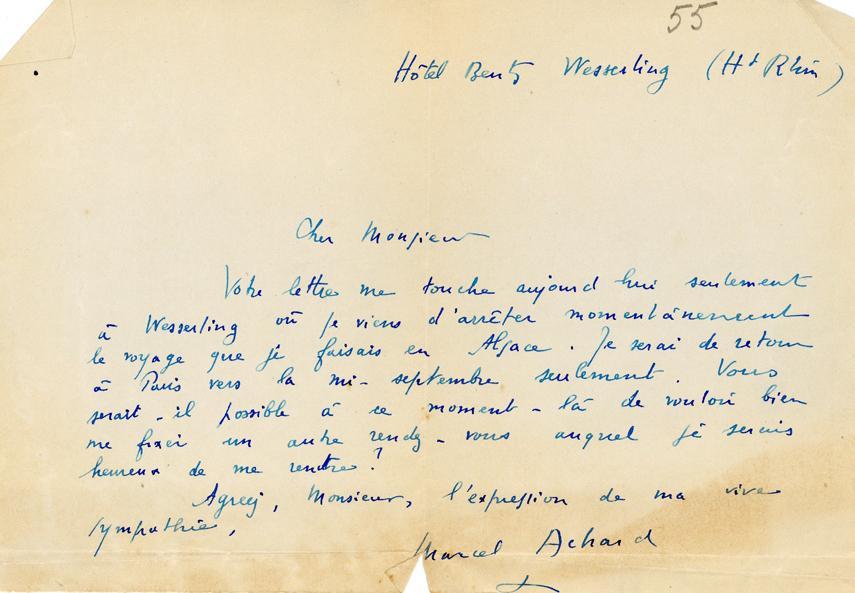 55
Hôtel Bentz Wesserling (Ht Rhin)
Cher Monsieur
Votre lettre me touche aujourd'hui seulement
à Wesserling où je viens d'arrêter momentanément
le voyage que je faisais en Alsace. Je serai de retour
à Paris vers la mi-septembre seulement. Vous
serait-il possible à ce moment-là de vouloir bien
me fixer un autre rendez-vous auquel je serais
heureux de me rendre ?
Agréez, Monsieur, l'expression de ma vive
sympathie,
Marcel Achard